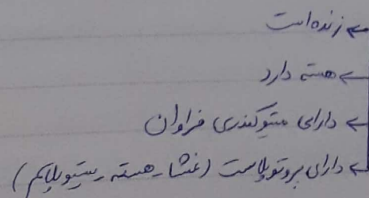 ← زنده است
← هسته دارد
← دارای میتوکندری فراوان
← دارای پروتوپلاست (غشا، هسته، سیتوپلاسم)